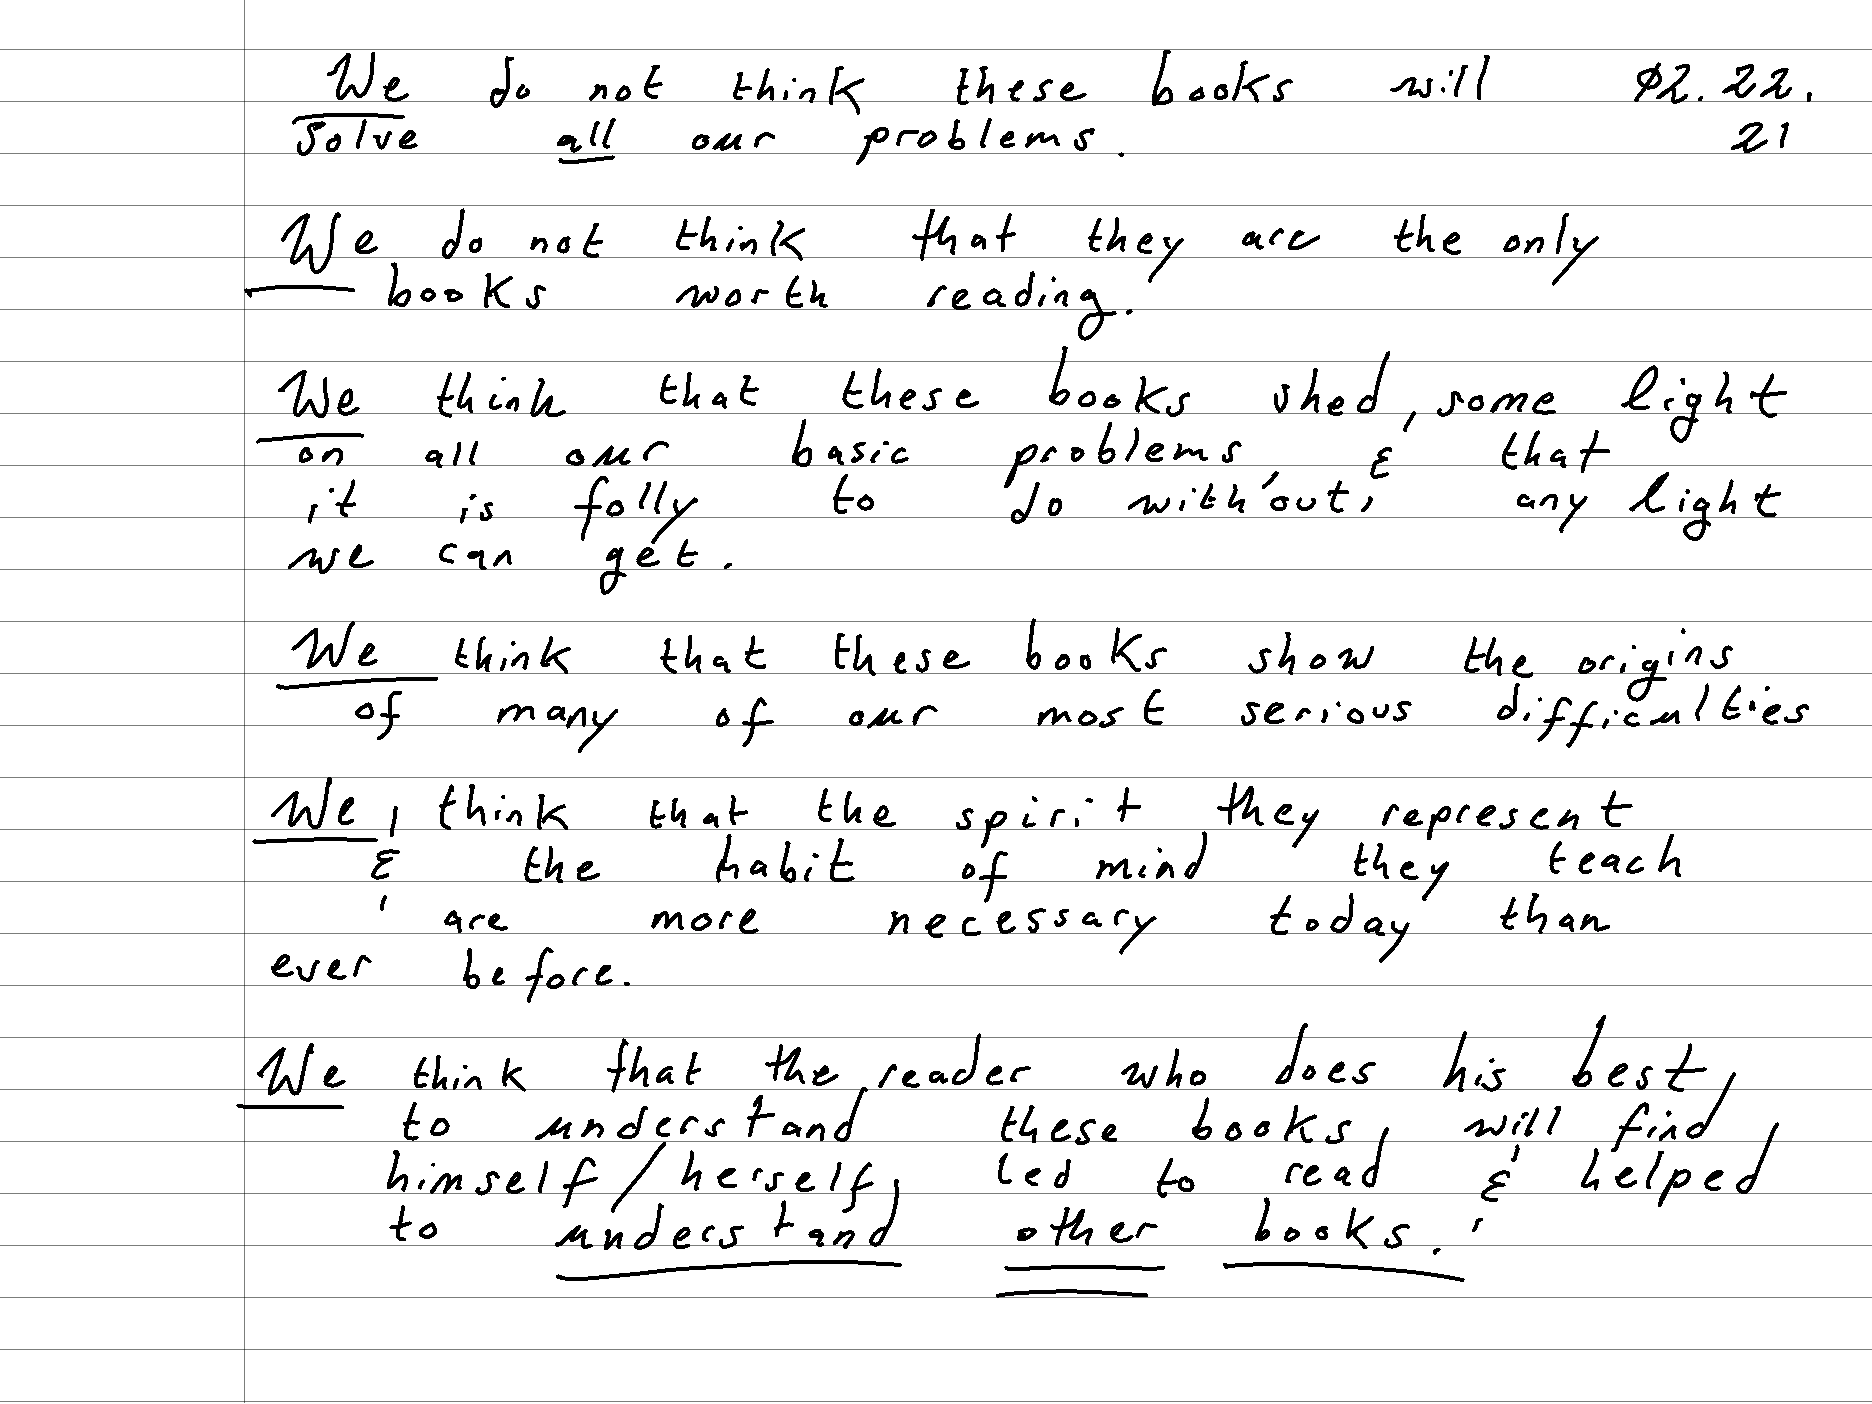 We do not think these books will Ø2.22.
solve all our problems. 21
We do not think that they are the only
books worth reading.
We think that these books shed, some light
on all our basic problems, & that
it is folly to do with'out, any light
we can get.
We think that these books show the origins
of many of our most serious difficulties
We, think that the spirit they represent
& the habit of mind they teach
are more necessary today than
ever before.
We think that the reader who does his best,
to understand these books, will find,
himself/herself, led to read & helped
to understand other books.